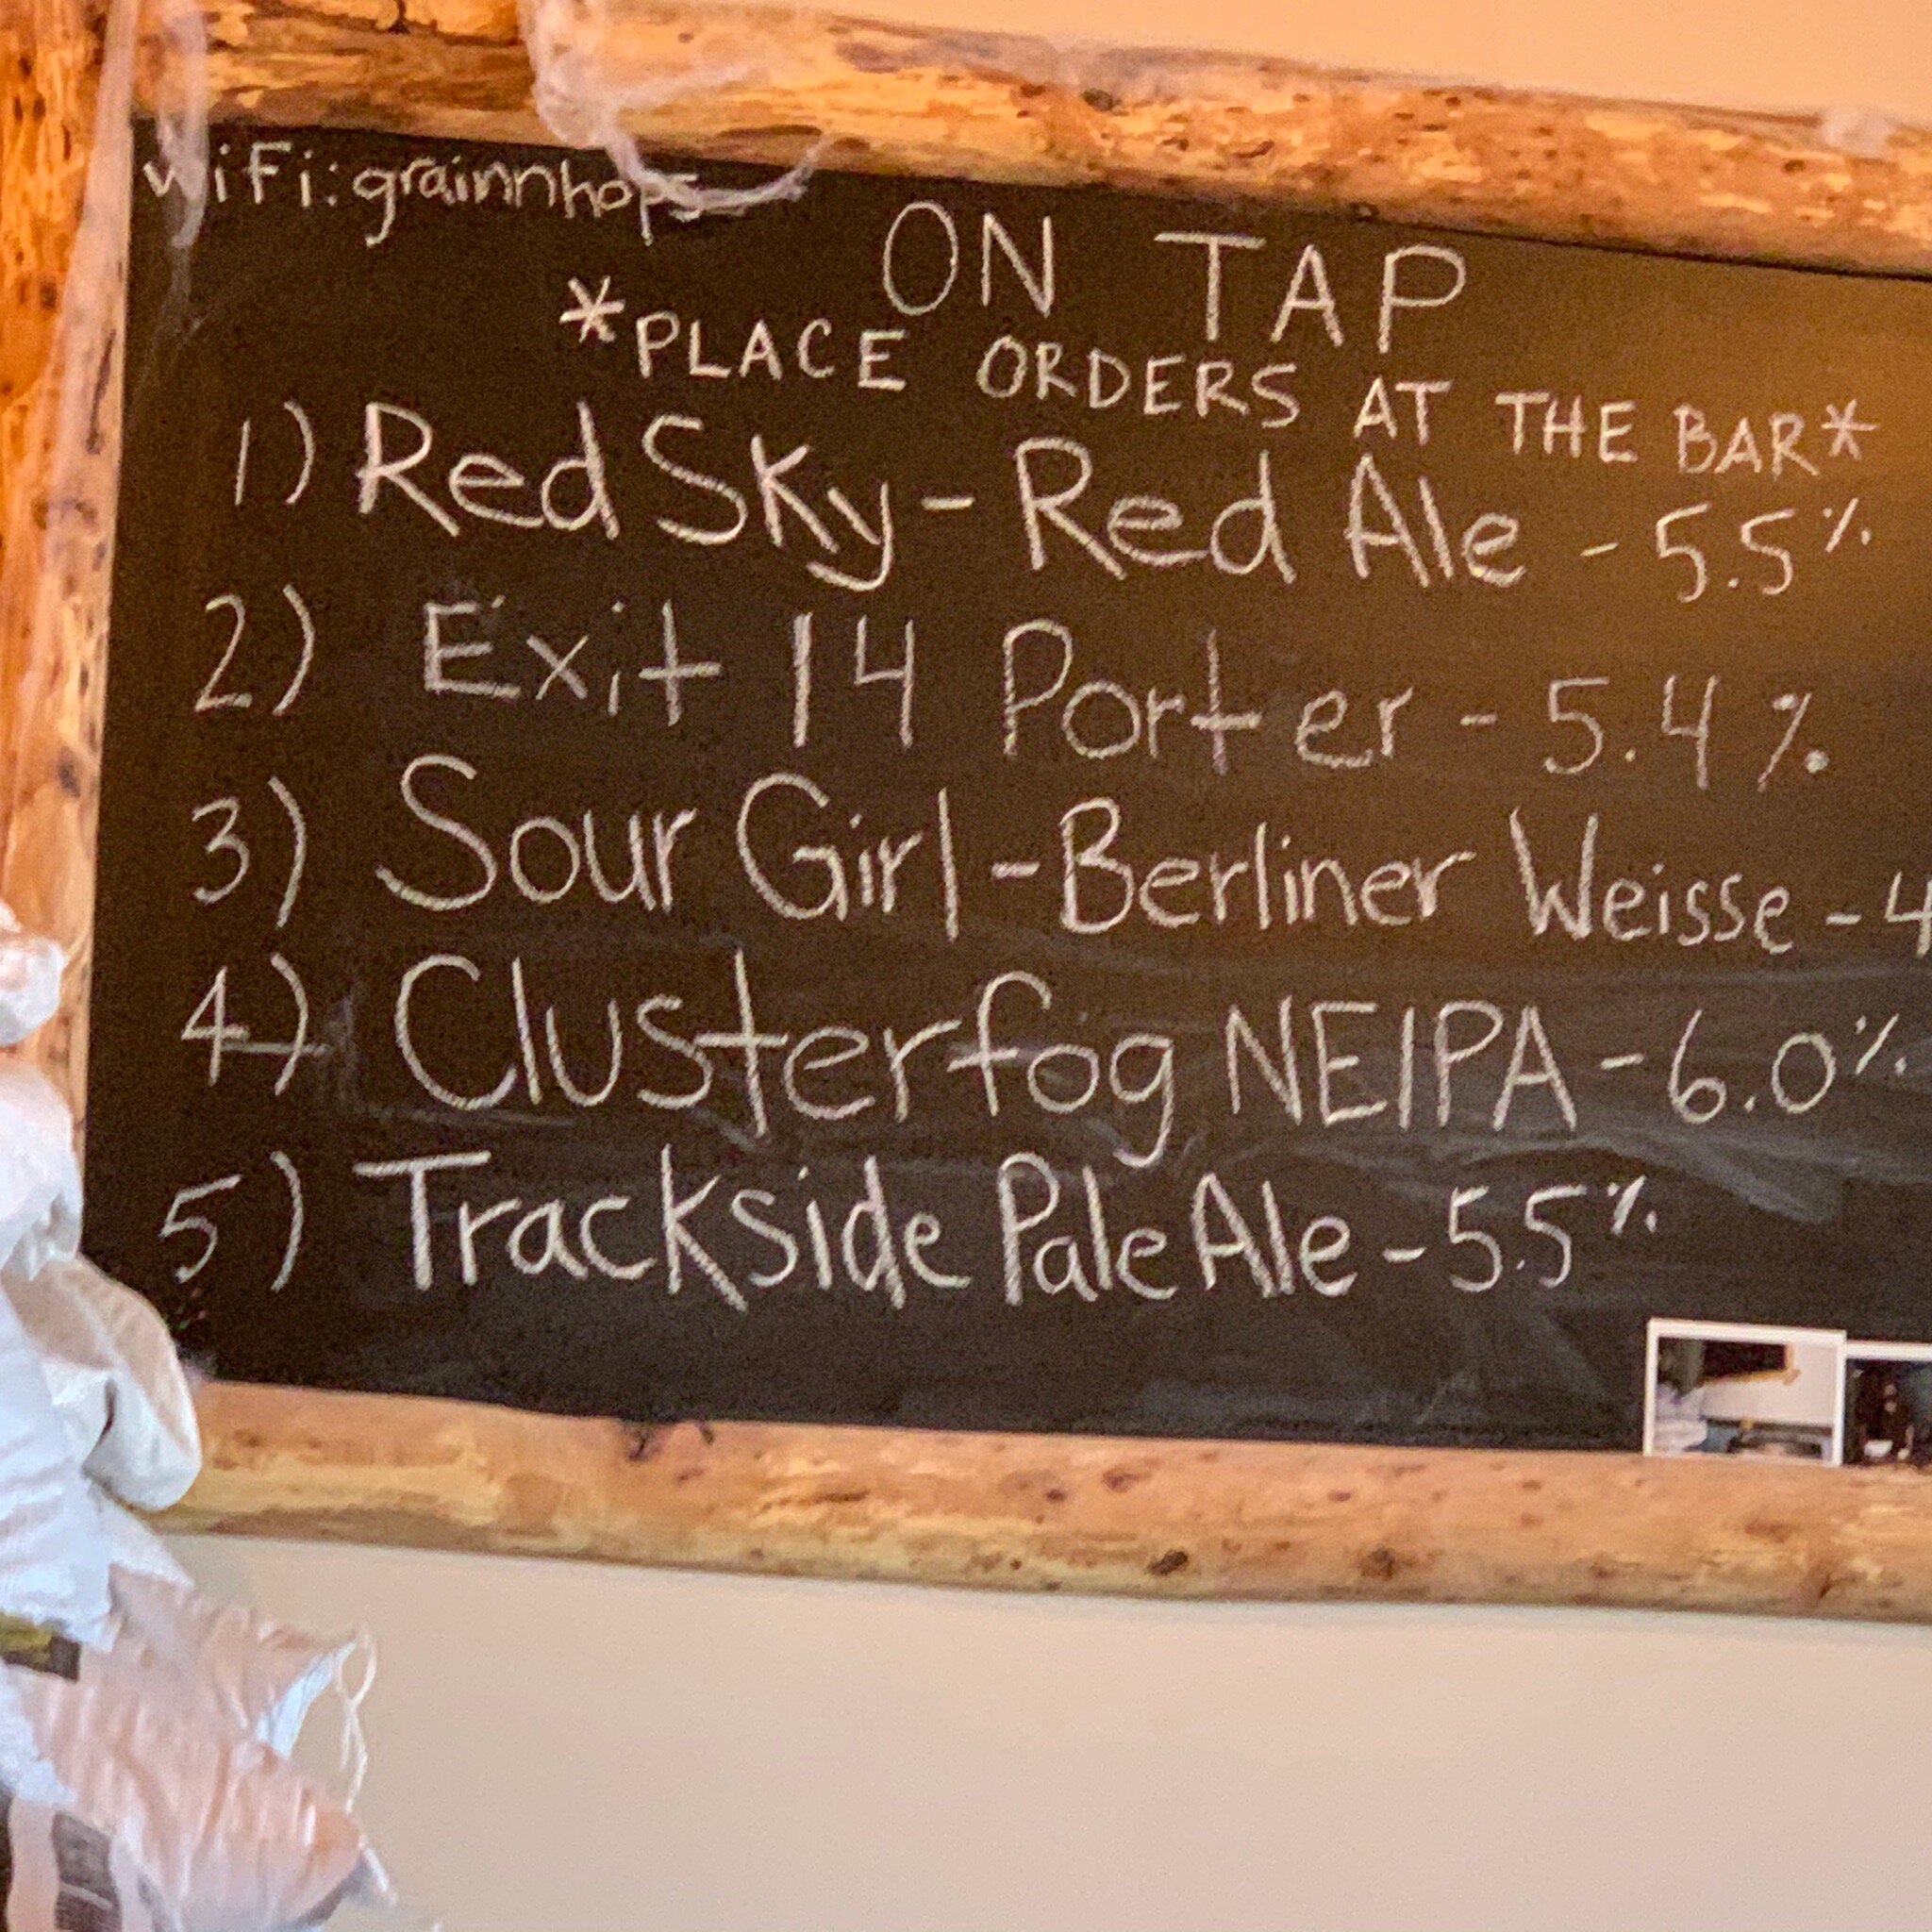 wiFi: grainnhops
ON TAP
*PLACE ORDERS AT THE BAR*
1) Red Sky - Red Ale - 5.5%
2) Exit 14 Porter - 5.4%
3) Sour Girl - Berliner Weisse - 4
4) Clusterfog NEIPA - 6.0%
5) Trackside Pale Ale - 5.5%